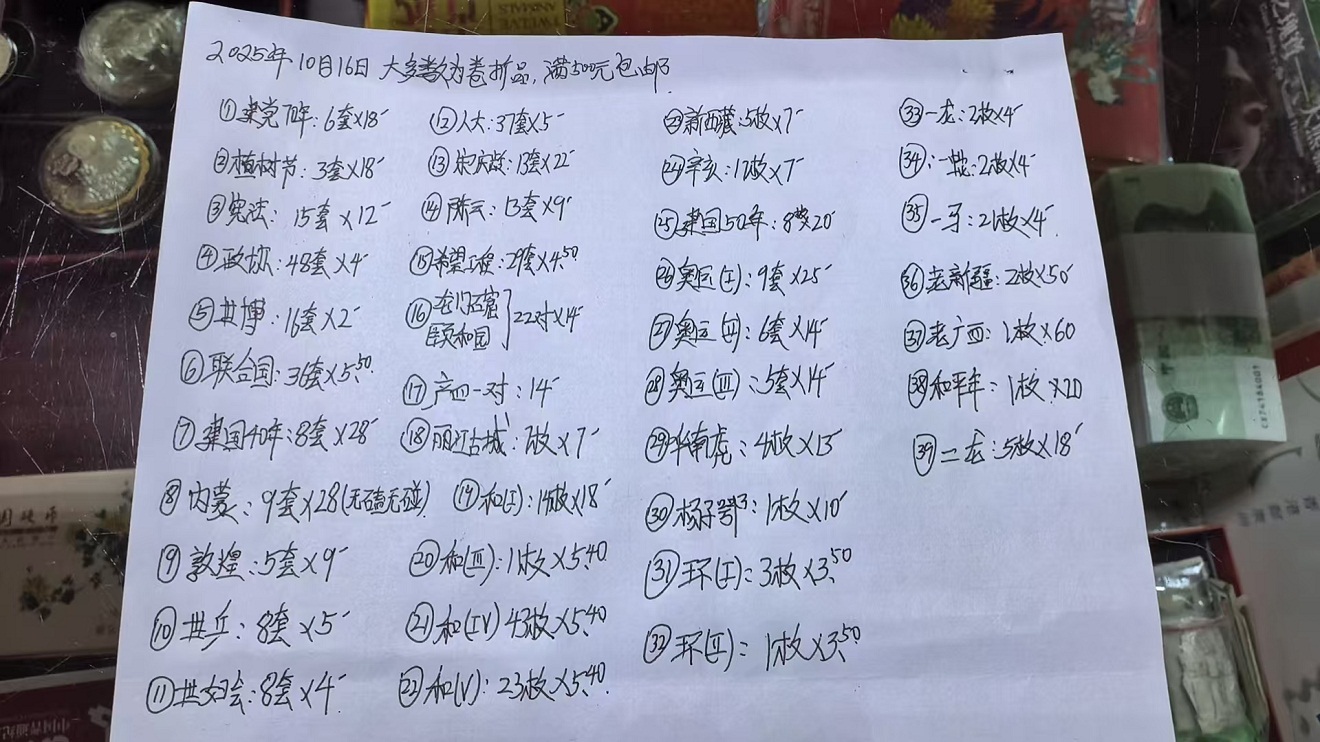 2025年10月16日 大多数为卷拆品,满500元包邮
①建党70年:6套×18
②植树节:3套×18
③宪法:15套×12
④政协:48套×4
⑤世博:16套×2
⑥联合国:36套×5.50
⑦建国40年:8套×28
⑧内蒙:9套×28(无磕无碰)
⑨敦煌:5套×9
⑩世乒:8套×5
⑪世妇会:8套×4
⑫人大:37套×5
⑬宋庆龄:13套×22
⑭陈云:13套×9
⑮希望工程:29套×4.50
⑯龙门石窟
颐和园]22对×14
⑰产四一对:14
⑱丽江古城:7枚×7
⑲和(I):14枚×18
⑳和(III):11枚×5.40
㉑和(IV)43枚×5.40
㉒和(V):23枚×5.40
㉓新西藏:5枚×7
㉔辛亥:17枚×7
㉕建国50年:8枚×20
㉖奥运(I):9套×25
㉗奥运(II):6套×14
㉘奥运(III):5套×14
㉙华南虎:4枚×13
㉚杨子鄂:1枚×10
㉛环(I):3枚×3.50
㉜环(II):1枚×3.50
㉝一龙:2枚×4
㉞一蛇:2枚×4
㉟一马:21枚×4
㊱老新疆:2枚×50
㊲老广西:1枚×60
㊳和平年:1枚×20
㊴二龙:5枚×18
TWELVE
ANIMALS
CE74184001